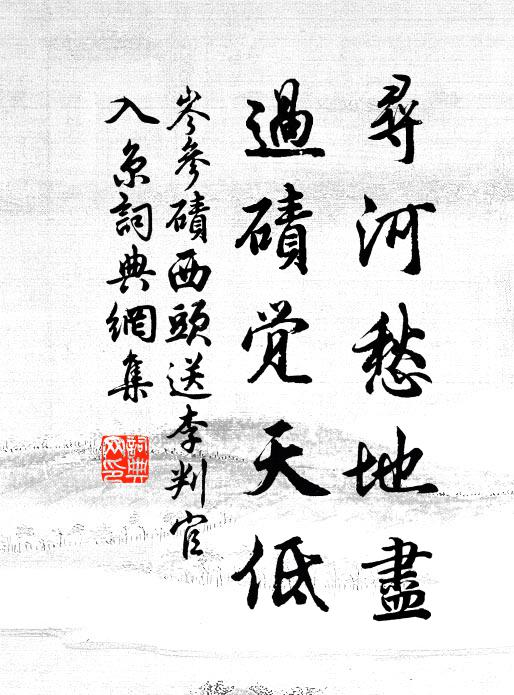 尋河愁地盡
過磧覚天低
岑參磧西頭送李判官
入京詞典網集
詞典网印